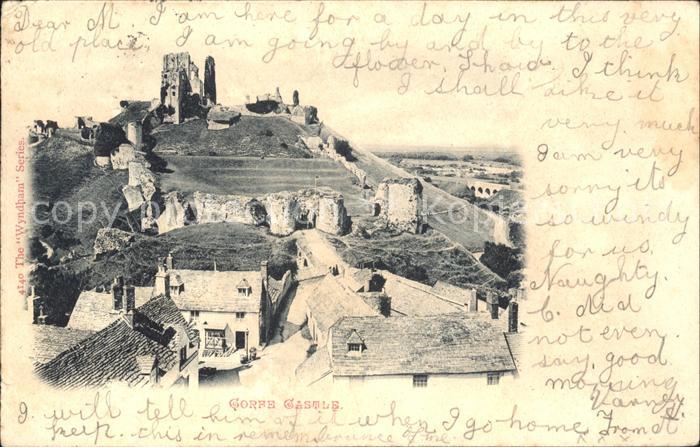 Dear M. I am here for a day in this very
old place, I am going by and by to the
flower, I think
I shall like it
very much
I am very
sorry its
so windy
for us
Naughty.
C. did
not even
say good
morning
From A
I will tell him of it when I go home
keep this in remembrance of me.
CORFE CASTLE.
4140 The "Wyndham" Series.